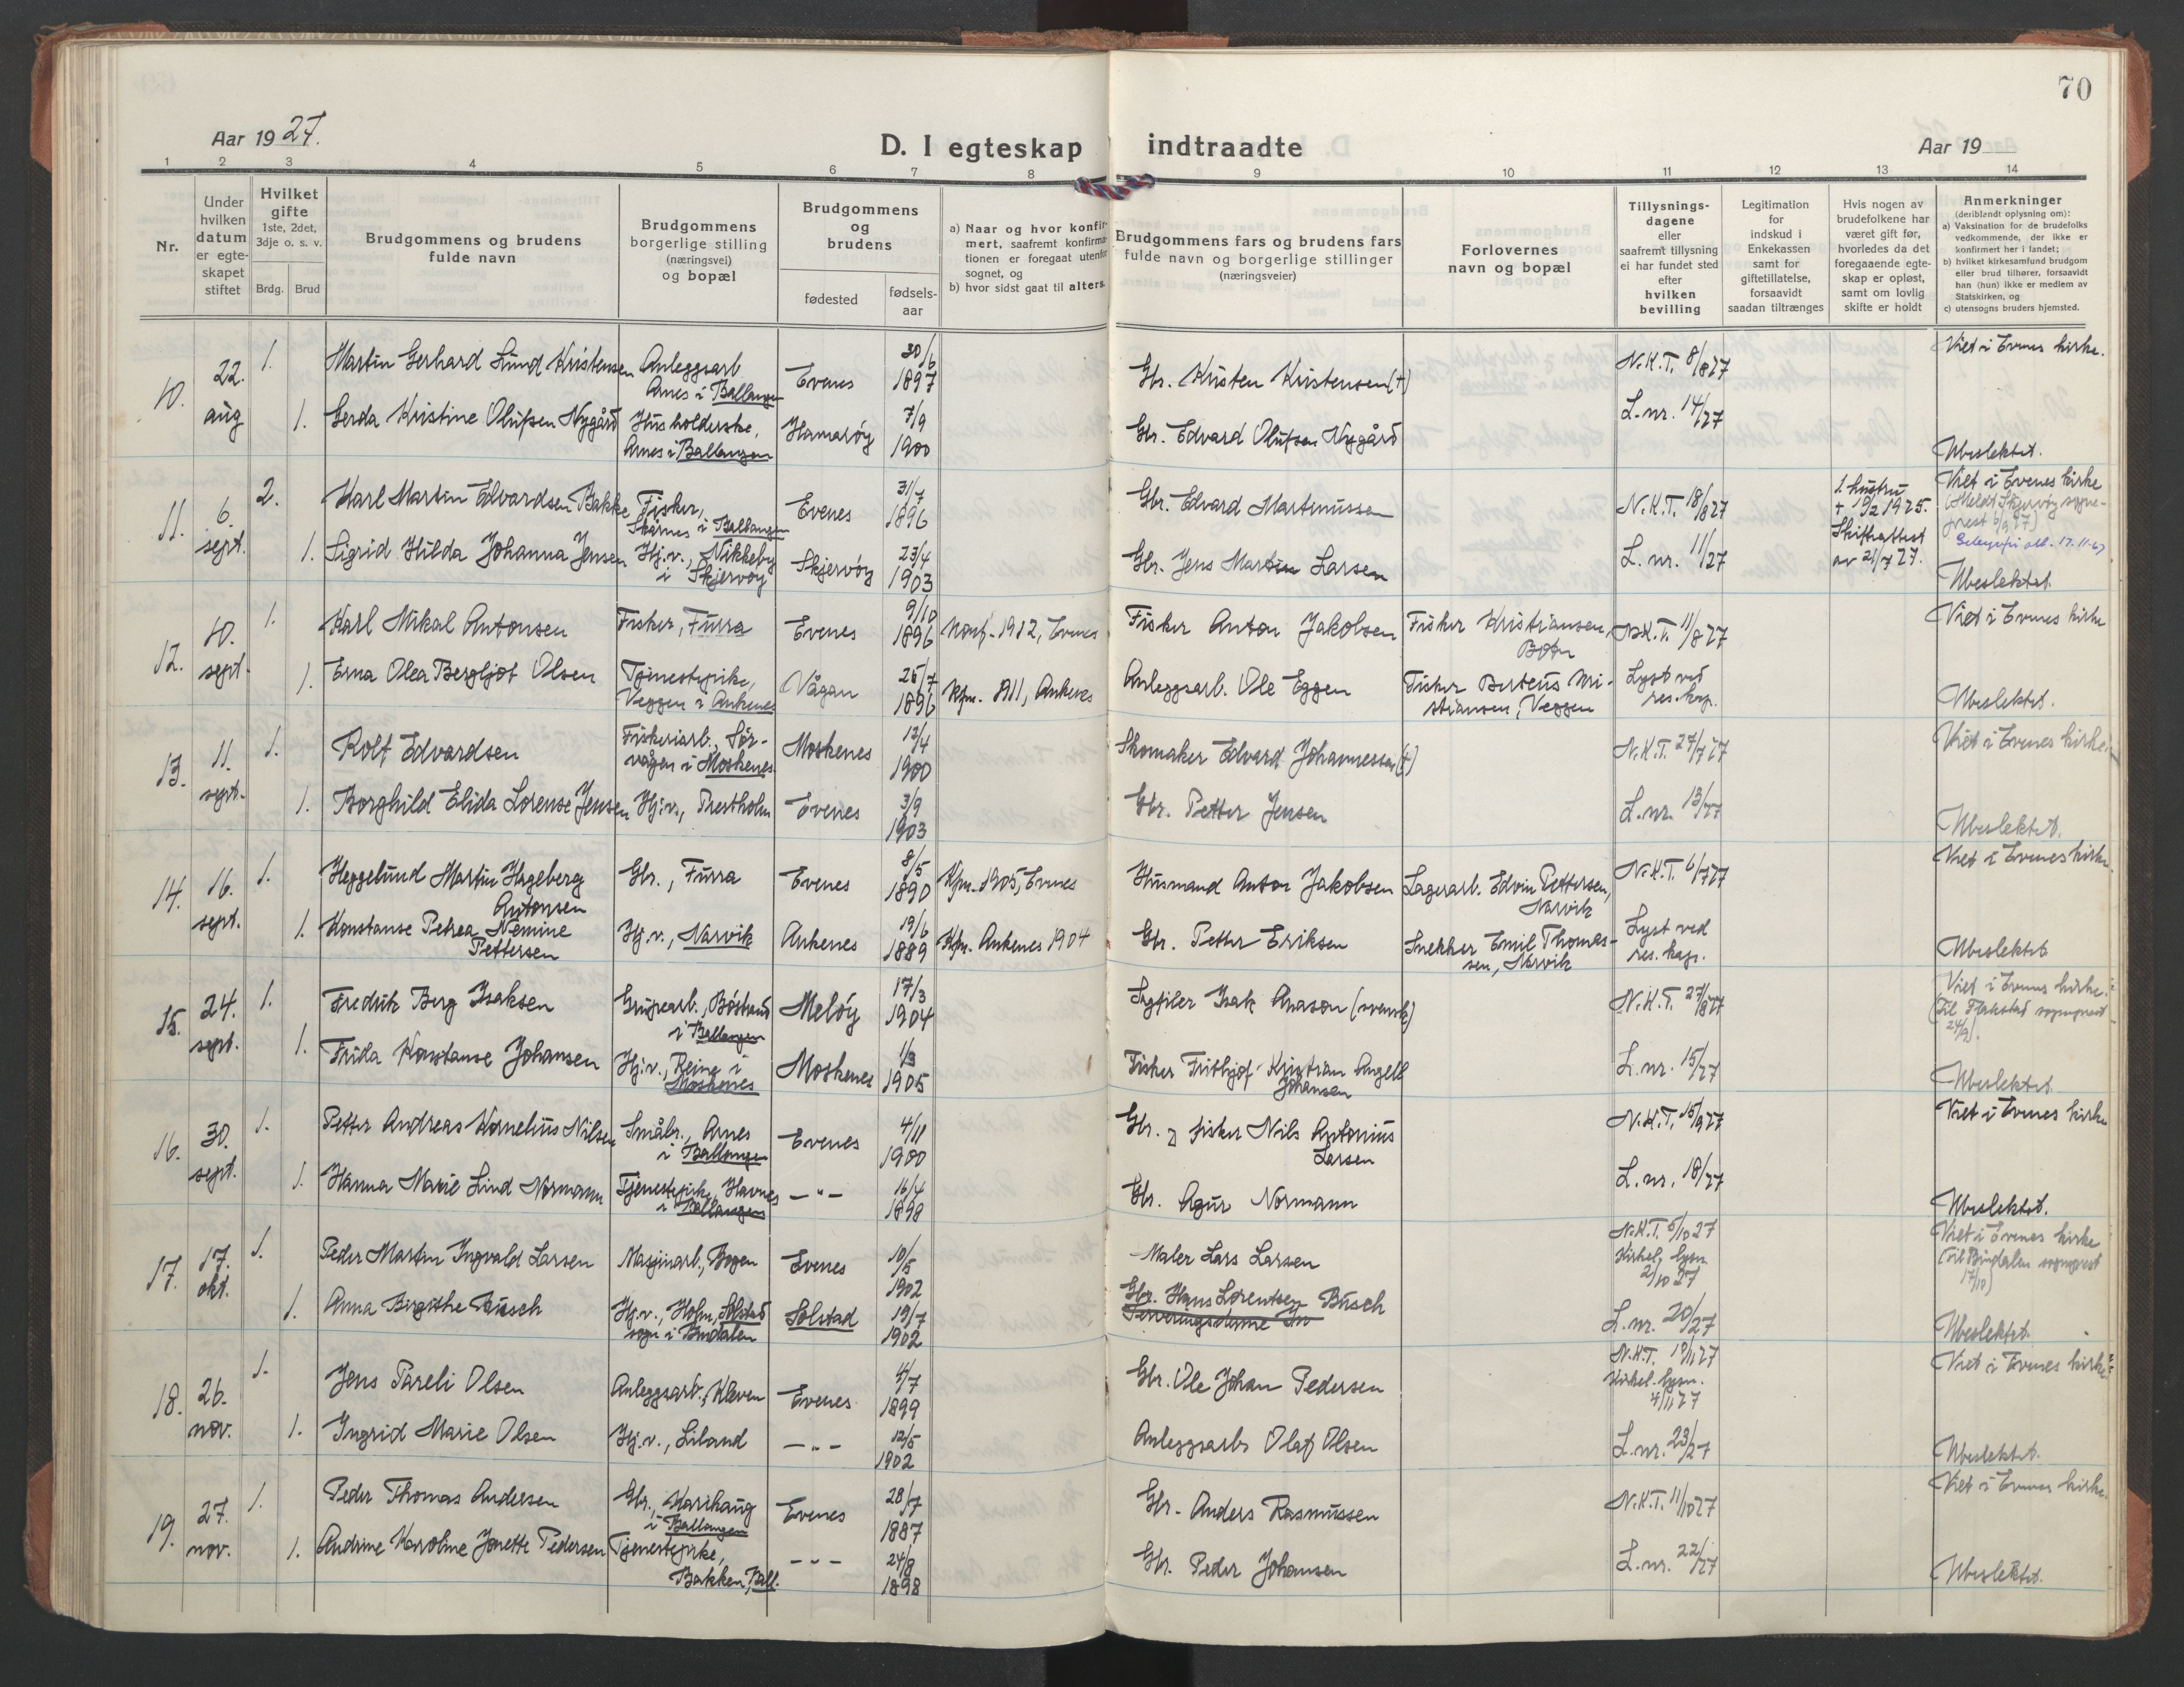 70
Aar 1927.
D. I egteskap indtraadte
Aar 19
1 2 3 4 5 6 7 8 9 10 11 12 13 14
Nr.
Under hvilken datum er egte-skapet stiftet
Hvilket gifte 1ste, 2det, 3dje o. s. v.
Brdg. Brud
Brudgommens og brudens fulde navn
Brudgommens borgerlige stilling (næringsvei) og bopæl
Brudgommens og brudens
fødested
fødsels-aar
a) Naar og hvor konfir-
mert, saafremt konfirma-
tionen er foregaat utenfor
sognet, og
b) hvor sidst gaat til alters.
Brudgommens fars og brudens fars
fulde navn og borgerlige stillinger
(næringsveier)
Forlovernes
navn og bopæl
Tillysnings-
dagene
eller
saafremt tillysning
ei har fundet sted
efter
hvilken
bevilling
Legitimation
for
indskud i
Enkekassen
samt for
giftetillatelse,
forsaavidt
saadan tiltrænges
Hvis nogen av
brudefolkene har
været gift før,
hvorledes da det
foregaaende egte-
skap er opløst,
samt om lovlig
skifte er holdt
Anmerkninger
(deriblandt oplysning om):
a) Vaksination for de brudefolks
vedkommende, der ikke er
konfirmert her i landet;
b) hvilket kirkesamfund brudgom
eller brud tilhører, forsaavidt
han (hun) ikke er medlem av
Statskirken, og
c) utensogns bruders hjemsted.
10. 22. aug 1. Martin Gerhard Lund Kristensen Anleggsarb. Arnes i Ballangen Evenes 30/6 1897 Gbr. Kristen Kristensen (+) N.K.T. 8/8 27 Viet i Evenes kirke.
1. Gerda Kristine Olufsen Nygård Husholderske, Arnes i Ballangen Hamarøy 7/9 1900 Gbr. Edvard Olufsen Nygård L. nr. 14/27 Ubeslektet.
11. 6. sept. 2. Karl Martin Edvardsen Bakke Fisker, Skarnes i Ballangen Evenes 31/7 1896 Gbr. Edvard Martinussen N.K.T. 18/8 27 1. hustru + 19/2 1925. Skifteattest av 21/7 27. Viet i Evenes kirke (Meldt Skjervøy sogne-prest 6/9 27)
1. Sigrid Hilda Johanna Jensen Hj.v., Nikkeby i Skjervøy Skjervøy 23/4 1903 Gbr. Jens Martin Larsen L. nr. 11/27 Ubeslektet.
12. 10. sept. 1. Karl Mikal Antonsen Fisker, Furra Evenes 9/10 1896 Konf. 1912, Evenes Fisker Anton Jakobsen Fisker Kristiansen, Botn N.K.T. 11/8 27 Viet i Evenes kirke
1. Erna Olea Bergljot Olsen Tjenestepike, Veggen i Ankenes Vågan 25/7 1896 Kfm. 1911, Ankenes Anleggsarb. Ole Eggen Fisker Berteus Kri-stiansen, Veggen Lyst ved res. kap. Ubeslektet.
13. 11. sept. 1. Rolf Edvardsen Fiskeriarb., Sør-vågen i Moskenes Moskenes 12/4 1900 Skomaker Edvard Johannessen (+) N.K.T. 27/7 27 Viet i Evenes kirke.
1. Borghild Elida Lorense Jensen Hj.v., Prestholm Evenes 3/9 1903 Gbr. Petter Jensen L. nr. 13/27 Ubeslektet.
14. 16. sept. 1. Heggelund Martin Hageberg Antonsen Gbr., Furra Evenes 8/5 1890 Kfm. 1905, Evenes Husmand Anton Jakobsen Lagerarb. Edvin Pettersen, Narvik N.K.T. 6/7 27 Viet i Evenes kirke.
1. Konstanse Petrea Nemine Pettersen Hj.v., Narvik Ankenes 19/6 1889 Kfm. Ankenes 1904 Gbr. Petter Eriksen Snekker Emil Thomas-sen, Narvik Lyst ved res. kap. Ubeslektet
15. 24. sept. 1. Fredrik Berg Isaksen Grupearb., Bøstrand i Ballangen Meløy 17/3 1904 Sagfiler Isak Anason (svensk) N.K.T. 27/8 27 Viet i Evenes kirke. (Til Flakstad sogneprest 24/9).
1. Frida Konstanse Johansen Hj.v., Reine i Moskenes Moskenes 1/3 1905 Fisker Frithjof Kristian Angell Johansen L. nr. 15/27 Ubeslektet.
16. 30. sept. 1. Petter Andreas Kornelius Nilsen Småbr., Arnes i Ballangen Evenes 4/11 1900 Gbr. & fisker Nils Antonius Larsen N.K.T. 15/9 27 Viet i Evenes kirke
1. Hanna Marie Lind Normann Tjenestepike, Havnes i Ballangen — " — 16/4 1898 Gbr. Agur Normann L. nr. 18/27 Ubeslektet.
17. 17. okt. 1. Peder Martin Ingvald Larsen Maskinarb., Bogen Evenes 10/5 1902 Maler Lars Larsen N.K.T. 5/10 27 Kirkel. lysn. 2/10 27 Viet i Evenes kirke (Til Bindalen sogneprest 17/10)
1. Anna Birgithe Busch Hj.v., Holm, Solstad sogn i Bindalen Solstad 19/7 1902 Gbr. Hans Lorentsen Busch L. nr. 20/27 Ubeslektet.
18. 26. nov. 1. Jens Pareli Olsen Anleggsarb., Kleven Evenes 4/7 1899 Gbr. Ole Johan Pedersen N.K.T. 19/11 27 Kirkel. lysn. 4/11 27 Viet i Evenes kirke
1. Ingrid Marie Olsen Hj.v., Liland — " — 12/5 1902 Anleggsarb. Olaf Olsen L. nr. 23/27 Ubeslektet.
19. 27. nov. 1. Peder Thomas Andersen Gbr., Karihaug i Ballangen Evenes 28/7 1887 Gbr. Anders Rasmussen N.K.T. 11/10 27 Viet i Evenes kirke.
1. Andrine Karoline Jonette Pedersen Tjenestepike, Bakken, Ball. — " — 24/8 1898 Gbr. Peder Johansen L. nr. 22/27 Ubeslektet.